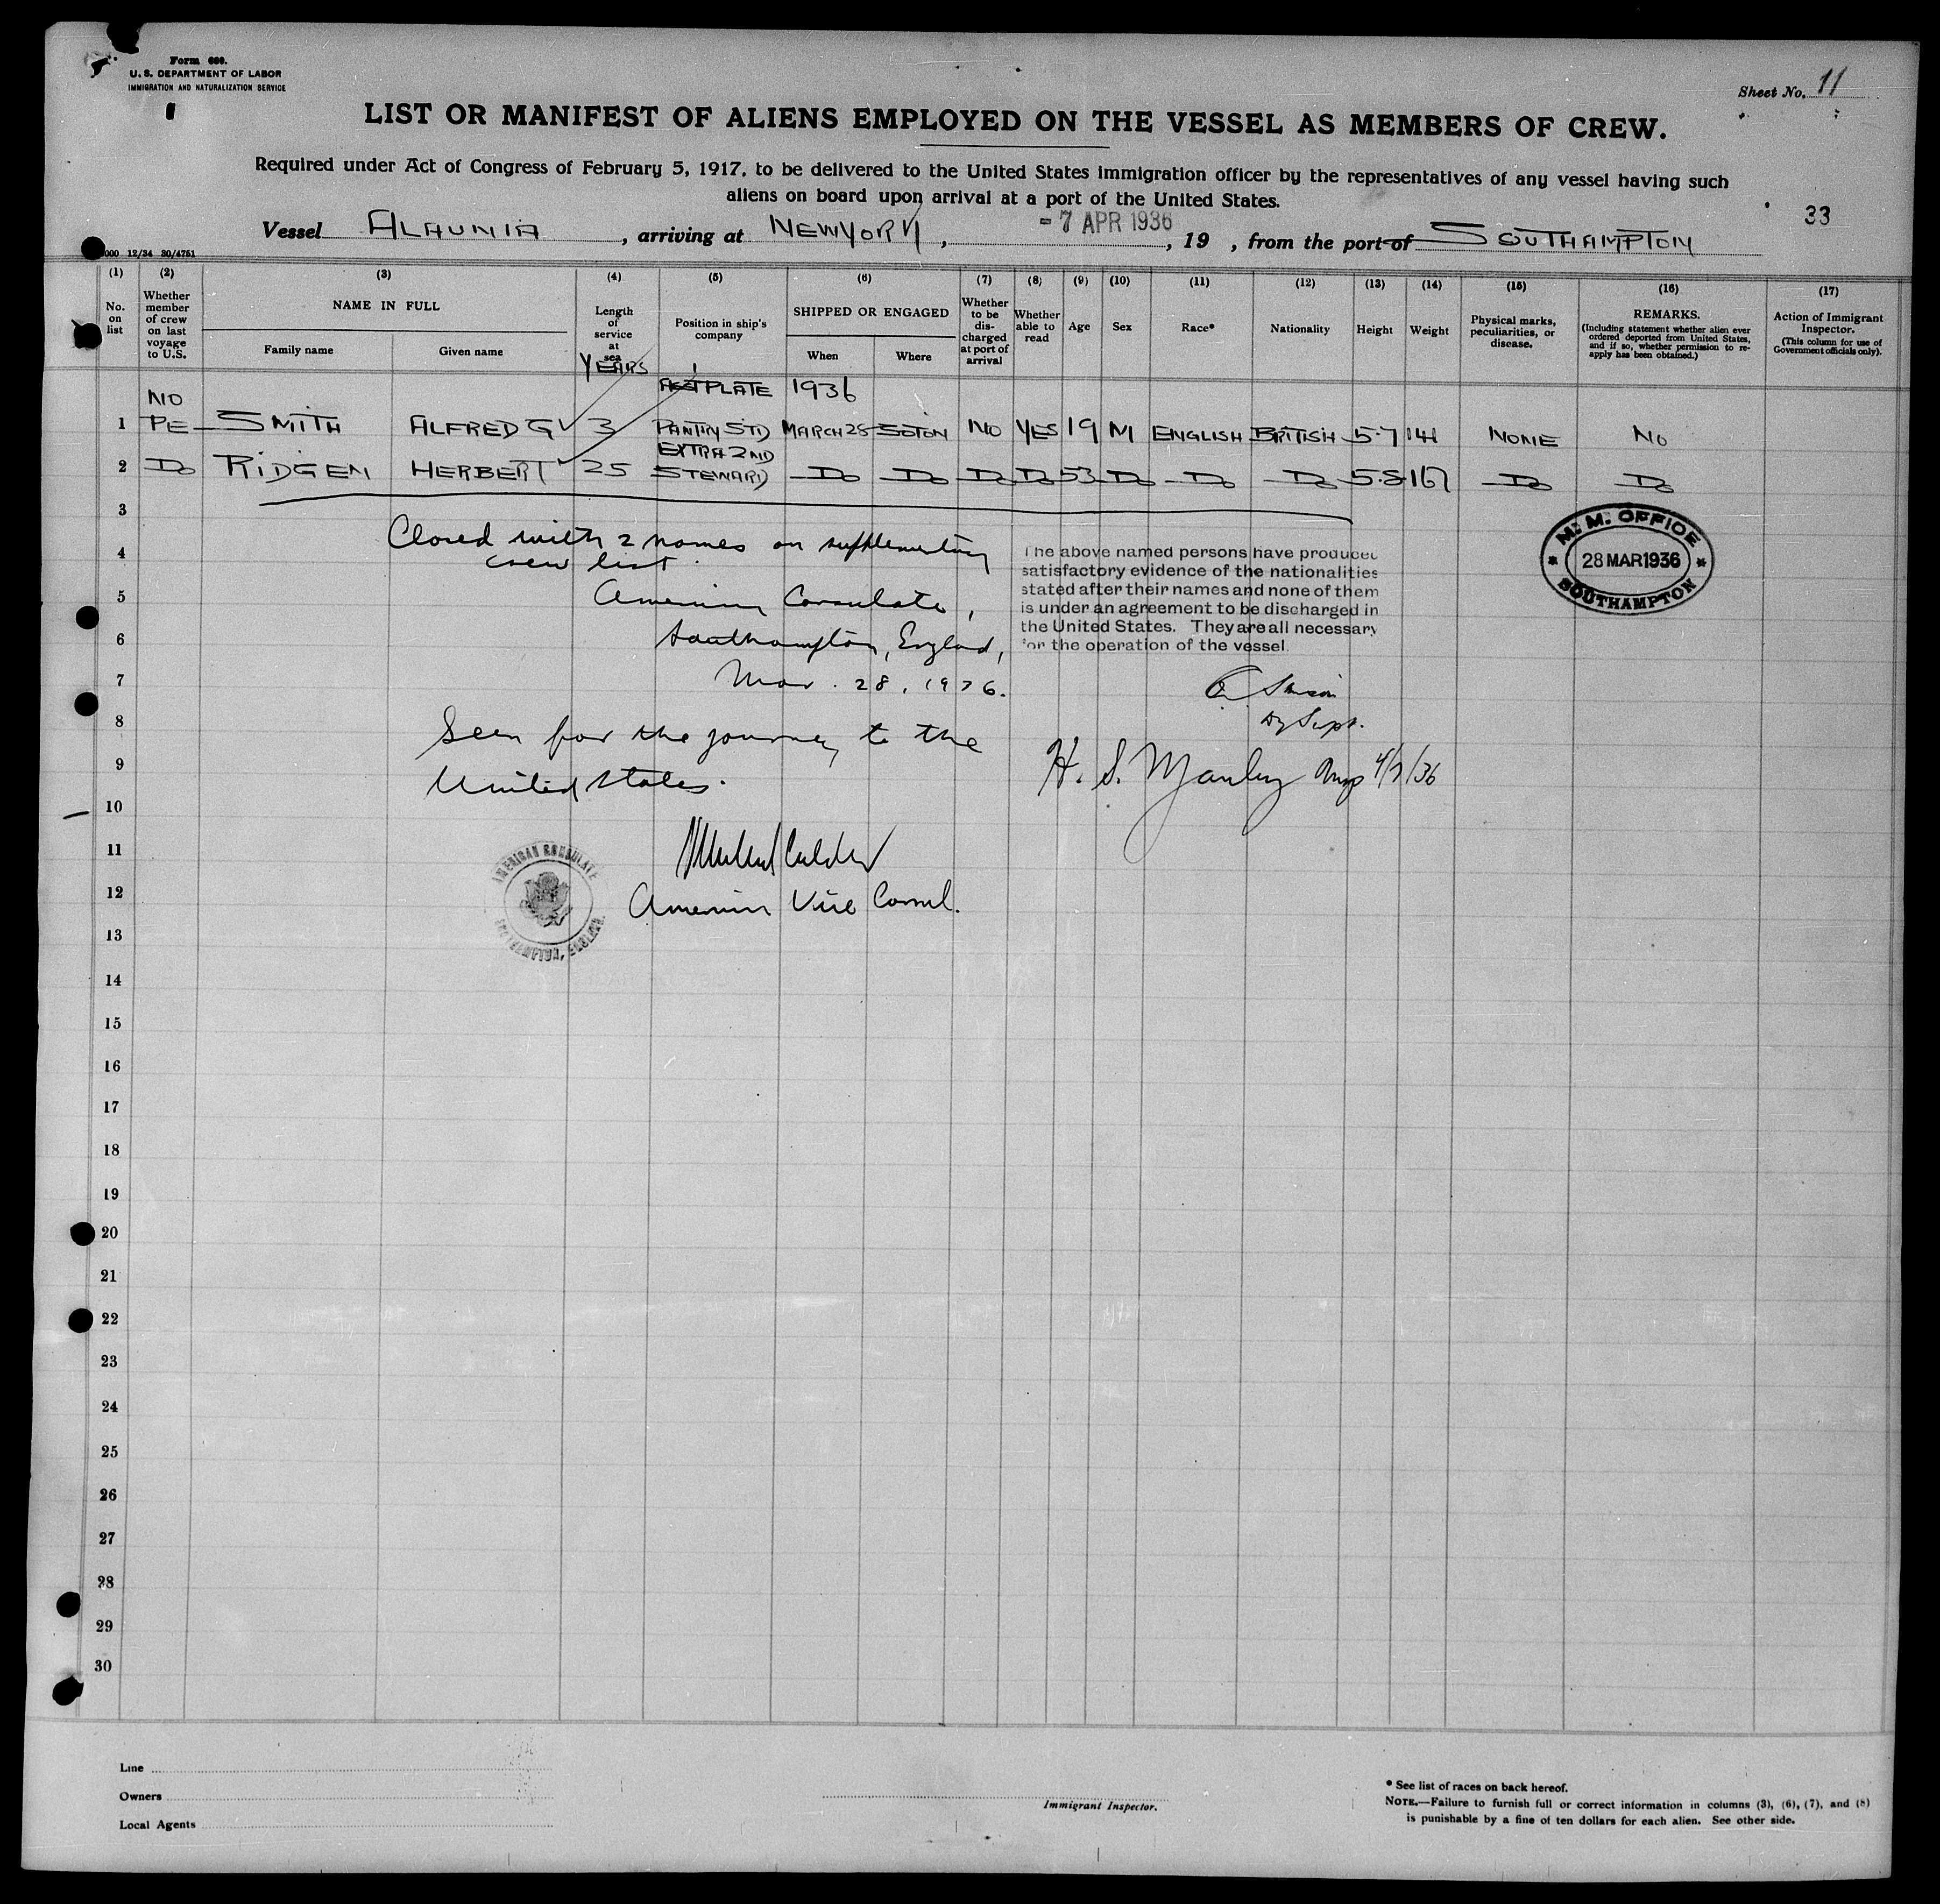 Form 680.
U. S. DEPARTMENT OF LABOR
IMMIGRATION AND NATURALIZATION SERVICE
Sheet No. 11
LIST OR MANIFEST OF ALIENS EMPLOYED ON THE VESSEL AS MEMBERS OF CREW.
Required under Act of Congress of February 5, 1917, to be delivered to the United States immigration officer by the representatives of any vessel having such
aliens on board upon arrival at a port of the United States.
33
Vessel ALAUNIA, arriving at NEWYORK, - 7 APR 1936, 19 , from the port of SOUTHAMPTON
000 12/34 30/4751
(1) (2) (3) (4) (5) (6) (7) (8) (9) (10) (11) (12) (13) (14) (15) (16) (17)
No. on list
Whether member of crew on last voyage to U.S.
NAME IN FULL
Family name
Given name
Length of service at sea
YEARS
Position in ship's company
SHIPPED OR ENGAGED
When
Where
Whether to be discharged at port of arrival
Whether able to read
Age
Sex
Race*
Nationality
Height
Weight
Physical marks, peculiarities, or disease.
REMARKS.
(Including statement whether alien ever ordered deported from United States, and if so, whether permission to reapply has been obtained.)
Action of Immigrant Inspector.
(This column for use of Government officials only).
NO PLATE 1936
1 PE SMITH ALFRED G 3 PANTRY STD MARCH 28 SOTON NO YES 19 M ENGLISH BRITISH 5-7 141 NONE NO
EXTRA 2ND
2 Do RIDGEN HERBERT 25 STEWARD Do Do Do Do 53 Do Do Do 5-8 167 Do Do
3
M. M. OFFICE
28 MAR 1936
SOUTHAMPTON
Closed with 2 names on supplementary
4
crew list.
The above named persons have produced
satisfactory evidence of the nationalities
stated after their names and none of them
is under an agreement to be discharged in
the United States. They are all necessary
for the operation of the vessel.
5
American Consulate,
6
Southampton, England,
7
Mar. 28, 1936.
Dy Supt.
8
Seen for the journey to the
9
United States.
H. S. Manley Insp 4/7/36
10
11
AMERICAN CONSULATE
SOUTHAMPTON, ENGLAND.
12
American Vice Consul.
13
14
15
16
17
18
19
20
21
22
23
24
25
26
27
28
29
30
Line
Owners
Local Agents
Immigrant Inspector.
* See list of races on back hereof.
NOTE.—Failure to furnish full or correct information in columns (3), (6), (7), and (8)
is punishable by a fine of ten dollars for each alien. See other side.